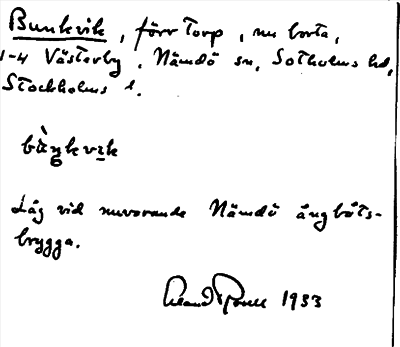 Bunkvik, förr torp, nu borta,
1-4 Västerby, Nämdö sn, Sotholms hd,
Stockholms l.
bàŋkvik
Låg vid nuvarande Nämdö ångbåts-
brygga.
1933